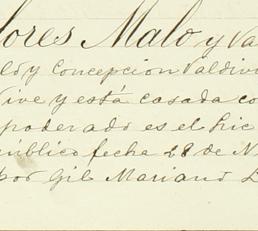 lores Malo y Va
ldo y Concepcion Valdivi
Vive y está casada co
poderado es el Lic
público fecha 28 de N
por Gil Mariano L